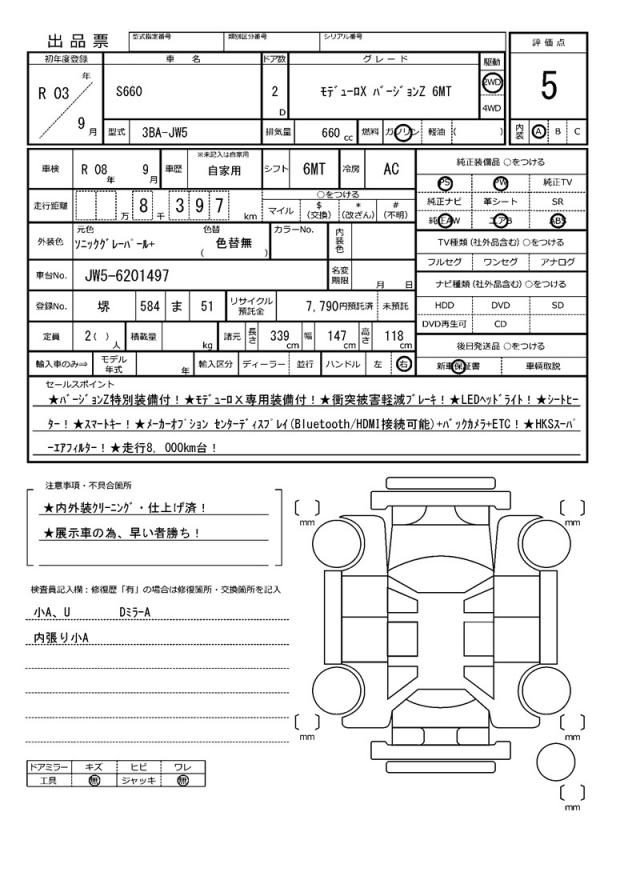 出品票 型式指定番号 類別区分番号 シリアル番号
評価点
初年度登録 車名 ドア数 グレード 駆動
R 03 年 9 月 S660 2 D ﾓﾃﾞｭｰﾛX ﾊﾞｰｼﾞｮﾝZ 6MT 2WD 4WD
5
型式 3BA-JW5 排気量 660 cc 燃料 ガソリン 軽油 ( ) 内装 A B C
車検 R 08 年 9 月 車歴 ※未記入は自家用 自家用 シフト 6MT 冷房 AC
純正装備品 ○をつける
PS PW 純正TV
走行距離 万 8 千 3 9 7 km ○をつける
マイル $ (交換) * (改ざん) # (不明)
純正ナビ 革シート SR
純正AW エアB ABS
外装色 元色 ｿﾆｯｸｸﾞﾚｰﾊﾟｰﾙ+ 色替 ( 色替無 ) カラーNo. 内装色
TV種類 (社外品含む) ○をつける
フルセグ ワンセグ アナログ
車台No. JW5-6201497 名変期限 月 日
ナビ種類 (社外品含む) ○をつける
登録No. 堺 584 ま 51 リサイクル預託金 7,790円預託済 未預託
HDD DVD SD
DVD再生可 CD
定員 2( ) 人 積載量 kg 諸元 長さ 339 cm 幅 147 cm 高さ 118 cm
後日発送品 ○をつける
輸入車のみ⇒ モデル年式 年 輸入区分 ディーラー 並行 ハンドル 左 右
新車保証書 車輌取説
セールスポイント
★ﾊﾞｰｼﾞｮﾝZ特別装備付！★ﾓﾃﾞｭｰﾛX専用装備付！★衝突被害軽減ﾌﾞﾚｰｷ！★LEDﾍｯﾄﾞﾗｲﾄ！★ｼｰﾄﾋｰ
ﾀｰ！★ｽﾏｰﾄｷｰ！★ﾒｰｶｰｵﾌﾟｼｮﾝ ｾﾝﾀｰﾃﾞｨｽﾌﾟﾚｲ(Bluetooth/HDMI接続可能)+ﾊﾞｯｸｶﾒﾗ+ETC！★HKSｽｰﾊﾟ
ｰｴｱﾌｨﾙﾀｰ！★走行8，000km台！
注意事項・不具合箇所
★内外装ｸﾘｰﾆﾝｸﾞ・仕上げ済！
★展示車の為、早い者勝ち！
検査員記入欄：修復歴「有」の場合は修復箇所・交換箇所を記入
小A、U DﾐﾗｰA
内張り小A
ドアミラー キズ ヒビ ワレ
工具 無 ジャッキ 無
[ ] mm [ ] mm
[ ] mm [ ] mm
[ ] mm